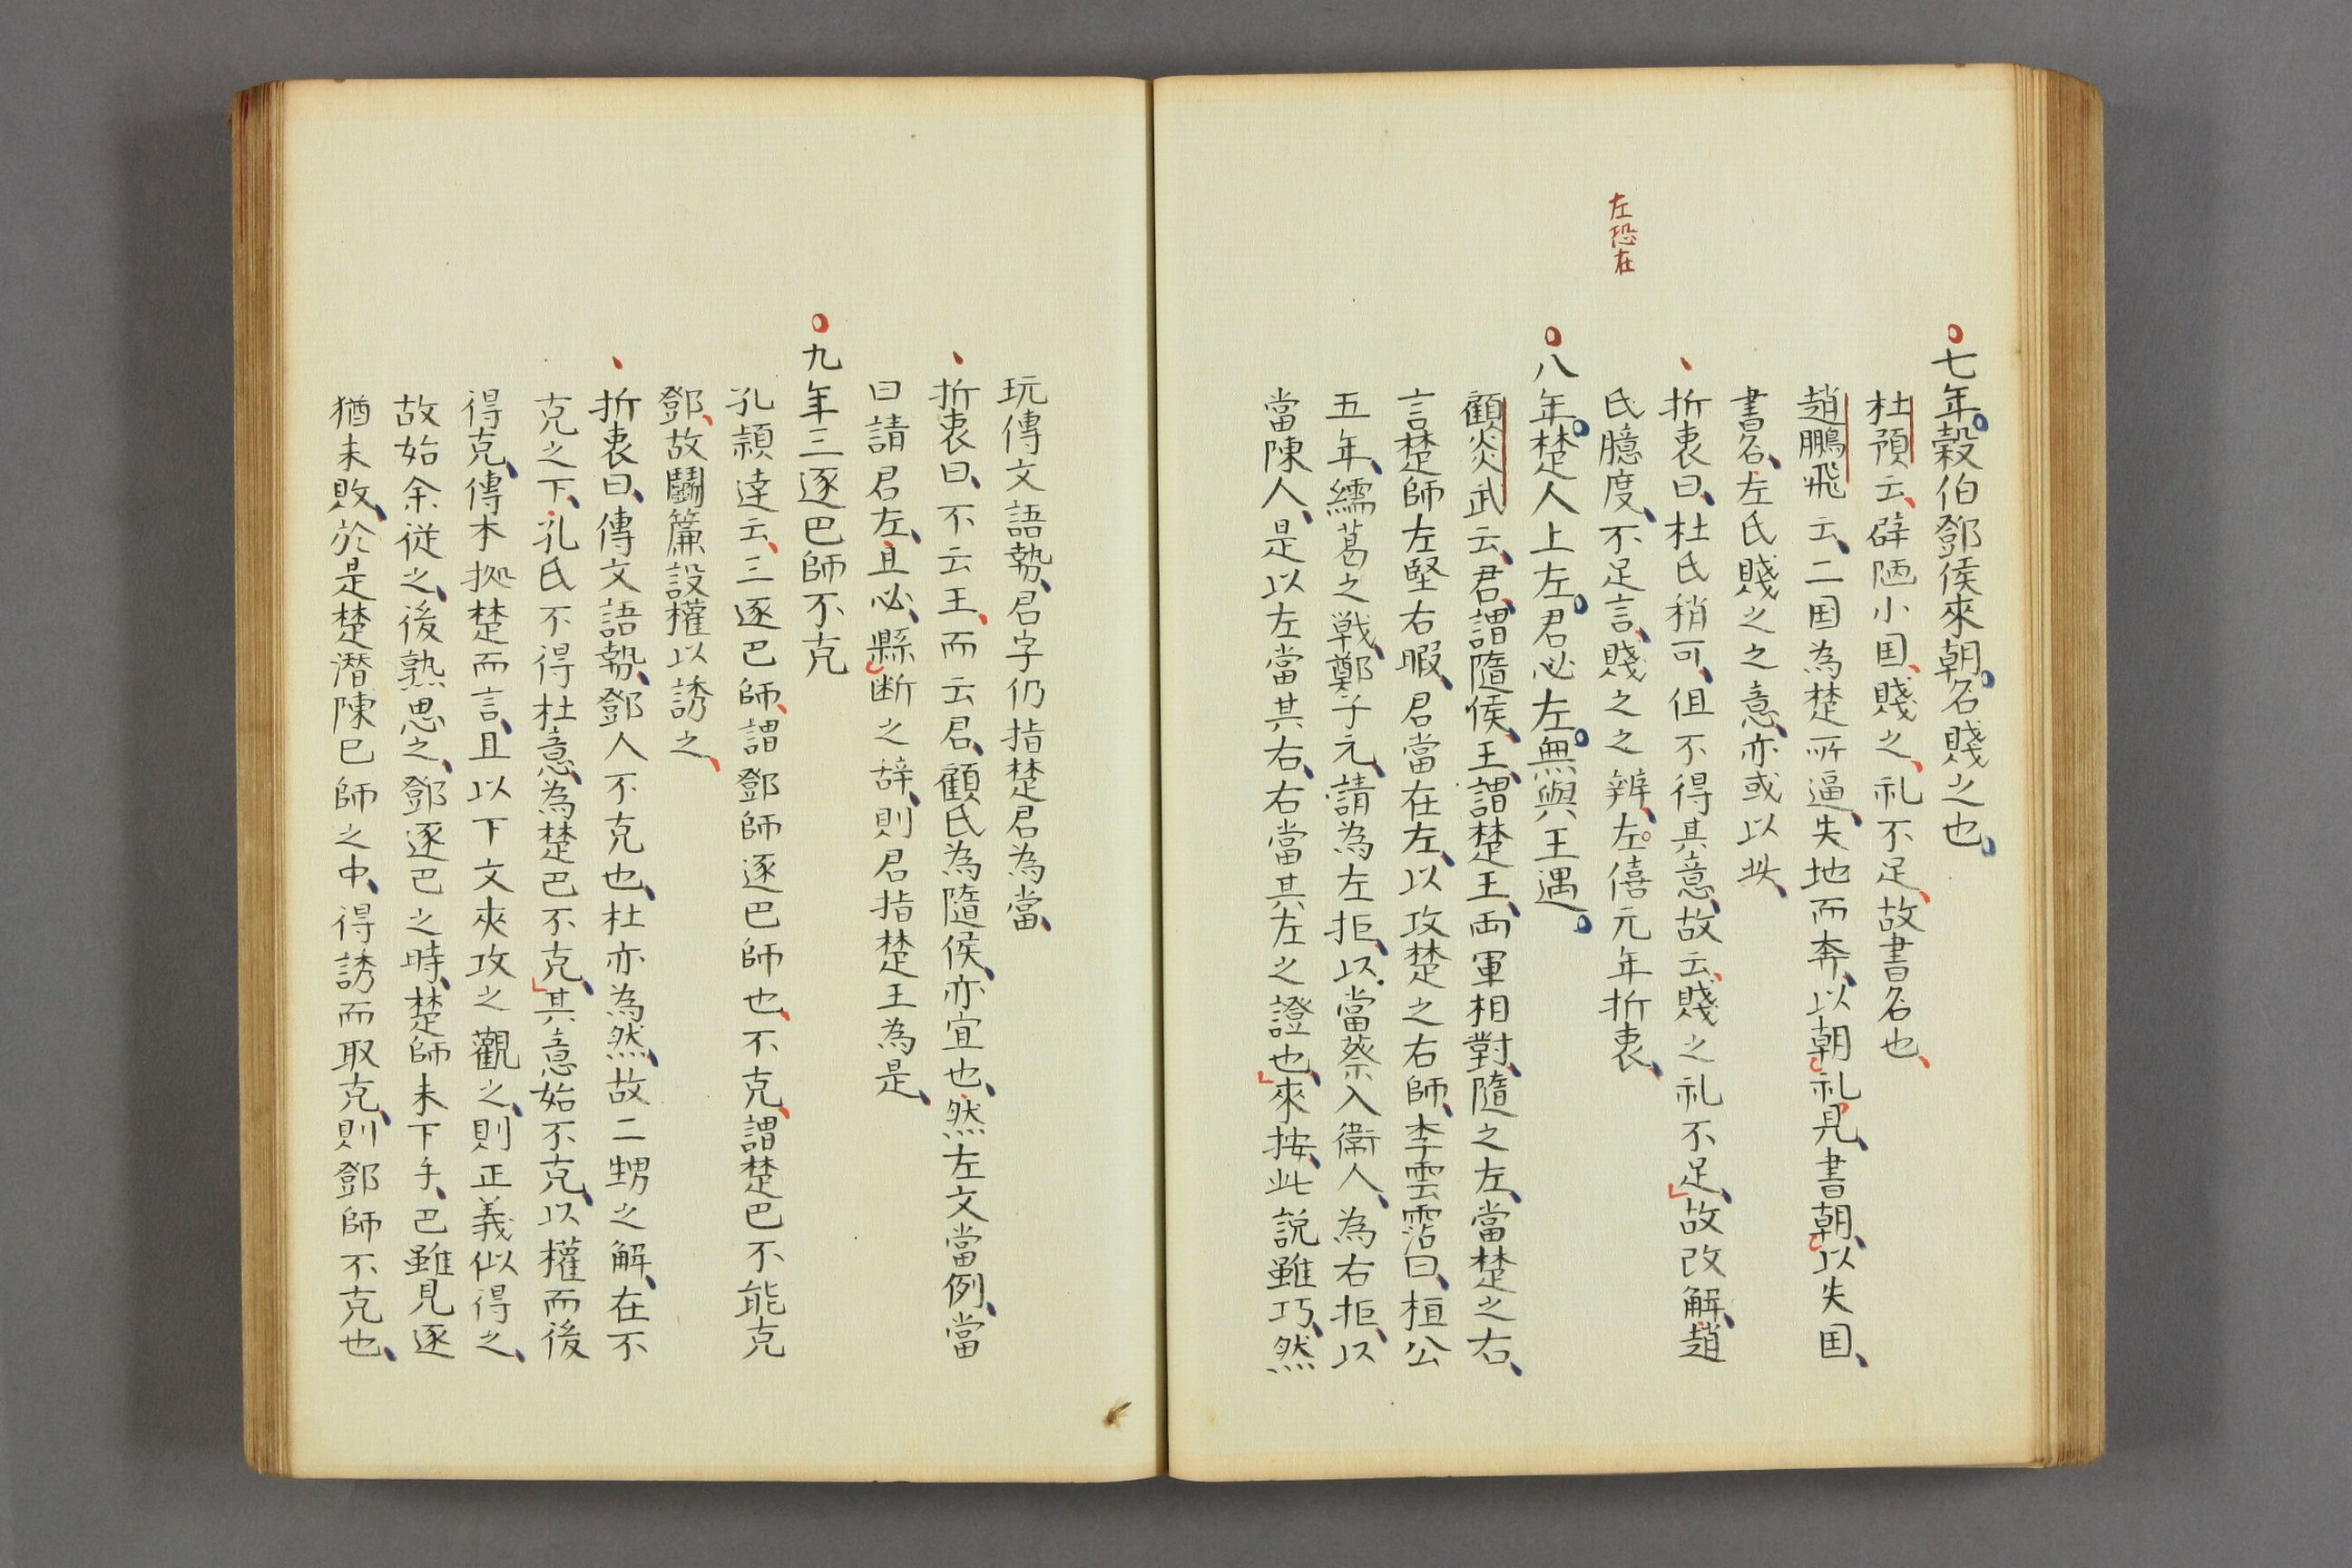 左恐在
七年。穀伯鄧侯來朝。名賤之也、
杜預云、辟陋小国、賤之、礼不足、故書名也、
趙鵬飛云、二国為楚所逼、失地而奔、以朝礼見、書朝、以失国、
書名、左氏賤之之意、亦或以此、
折衷曰、杜氏稍可、但不得其意、故云、賤之礼不足、故改解、趙
氏臆度、不足言、賤之之辨、左僖元年折衷、
八年。楚人上左。君必左。無與王遇。
顧炎武云、君、謂隨侯、王、謂楚王、両軍相對、隨之左、當楚之右、
言楚師左堅右暇、君當在左、以攻楚之右師、李雲霑曰、桓公
五年、繻葛之戦、鄭子元、請為左拒、以當蔡入衛人、為右拒、以
當陳人、是以左當其右、右當其左之證也、來按、此説雖巧、然
玩傳文語勢、君字仍指楚君為當、
折衷曰、不云王、而云君、顧氏為隨侯、亦宜也、然左文當例、當
曰請君左、且必、縣断之辞、則君指楚王為是、
九年三逐巴師不克
孔頴達云、三逐巴師、謂鄧師逐巴師也、不克、謂楚巴不能克
鄧、故鬭簾設權以誘之、
折衷曰、傳文語勢、鄧人不克也、杜亦為然、故二甥之解、在不
克之下、孔氏不得杜意、為楚巴不克、其意始不克、以權而後
得克、傳本拠楚而言、且以下文夾攻之觀之、則正義似得之、
故始余従之、後熟思之、鄧逐巴之時、楚師未下手、巴雖見逐
猶未敗、於是楚潜陳巳師之中、得誘而取克、則鄧師不克也、